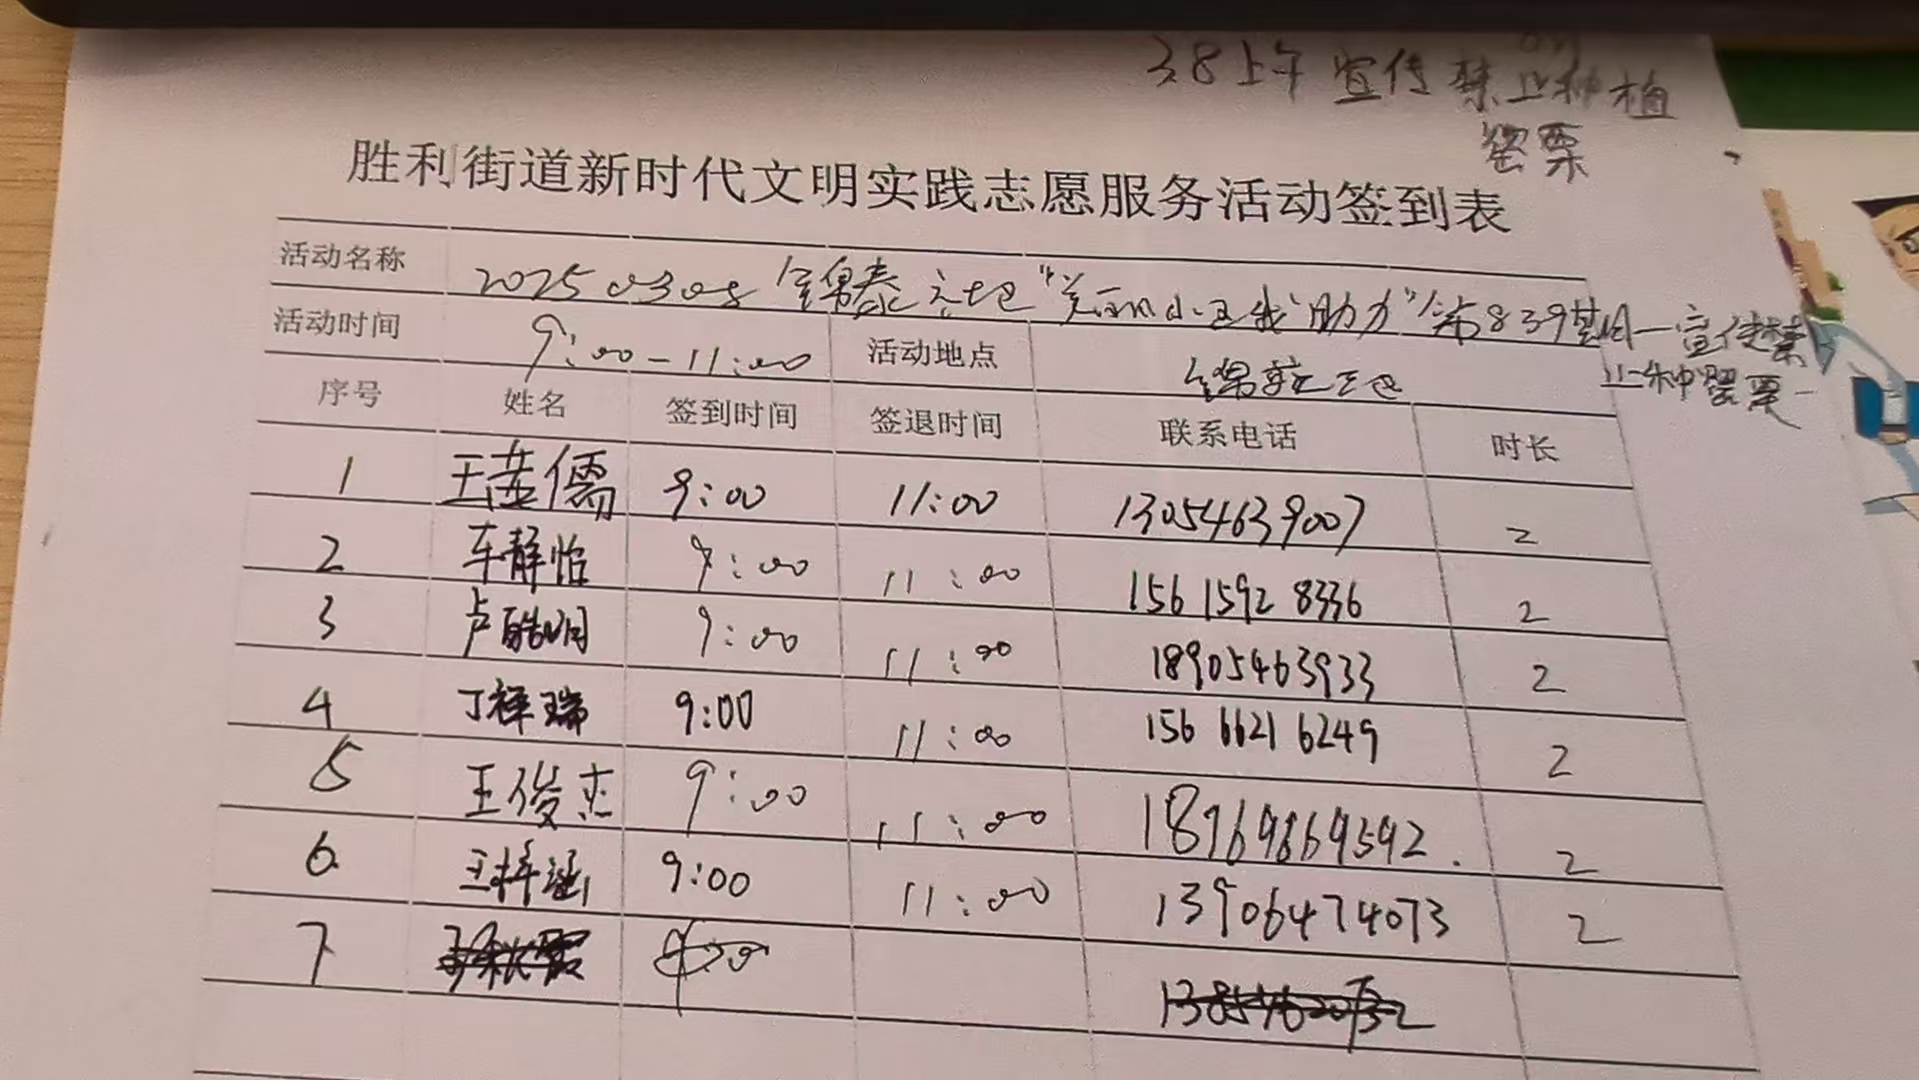 3.8上午 宣传禁止种植
罂粟
胜利街道新时代文明实践志愿服务活动签到表
活动名称 20250308 锦泰社区“美丽小区我助力”第839期—宣传禁
止种罂粟—
活动时间 9:00-11:00 活动地点
序号 姓名 签到时间 签退时间 联系电话 时长
1 王茜儒 9:00 11:00 13054639007 2
2 车静怡 9:00 11:00 156 1592 8336 2
3 卢皓明 9:00 11:00 18905463933 2
4 丁祥瑞 9:00 11:00 156 6621 6249 2
5 王俊杰 9:00 11:00 18969869592. 2
6 王梓涵 9:00 11:00 13906474073 2
7